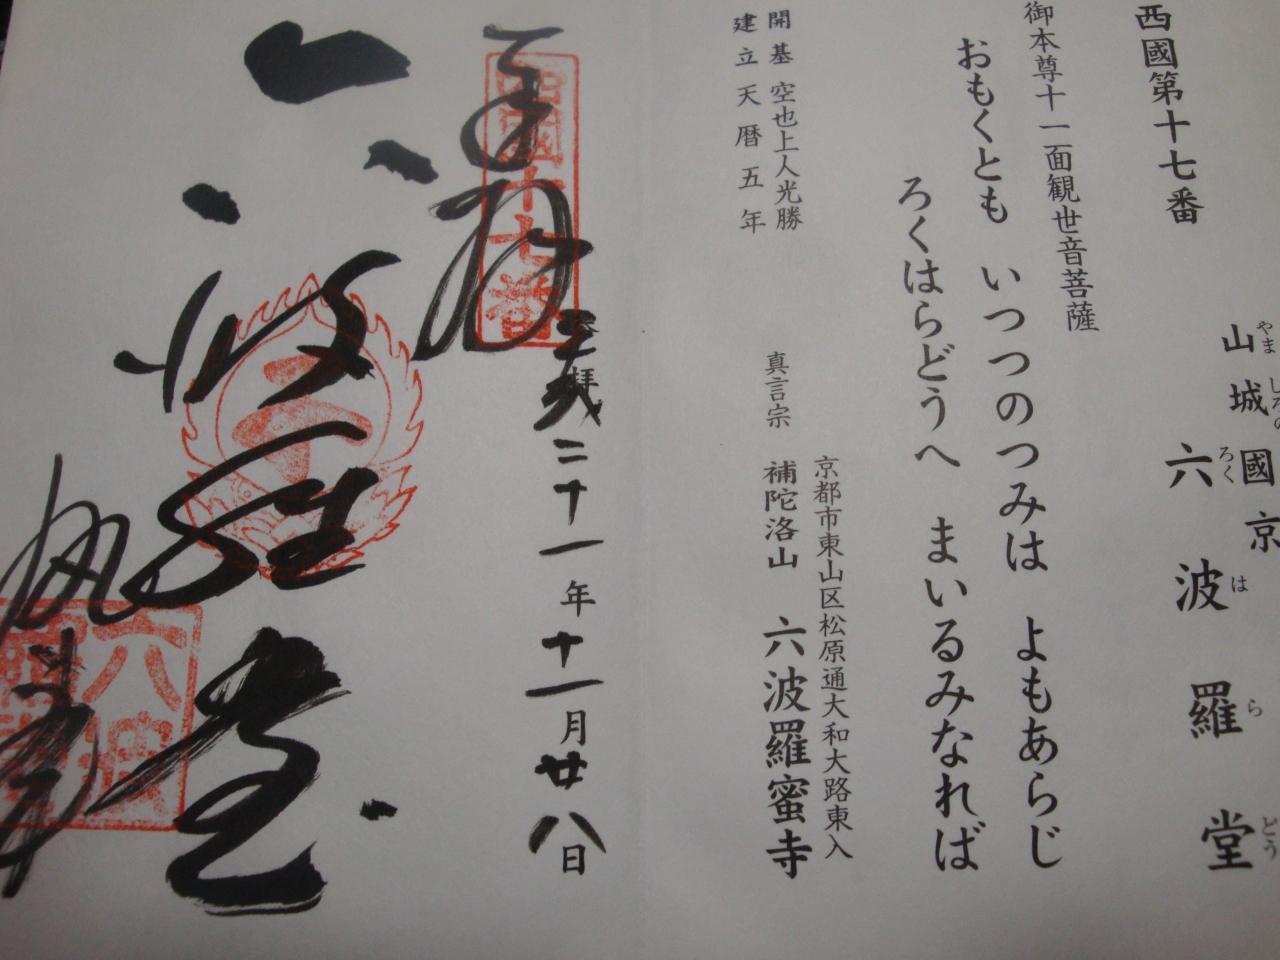 西國第十七番
山城國京
やましろの
六波羅堂
ろくはらどう
御本尊十一面観世音菩薩
おもくとも いつつのつみは よもあらじ
ろくはらどうへ まいるみなれば
開基 空也上人光勝
建立 天暦五年
京都市東山区松原通大和大路東入
真言宗 補陀洛山 六波羅蜜寺
奉拝
西國十七番
二十一年十一月廿八日
六波羅堂